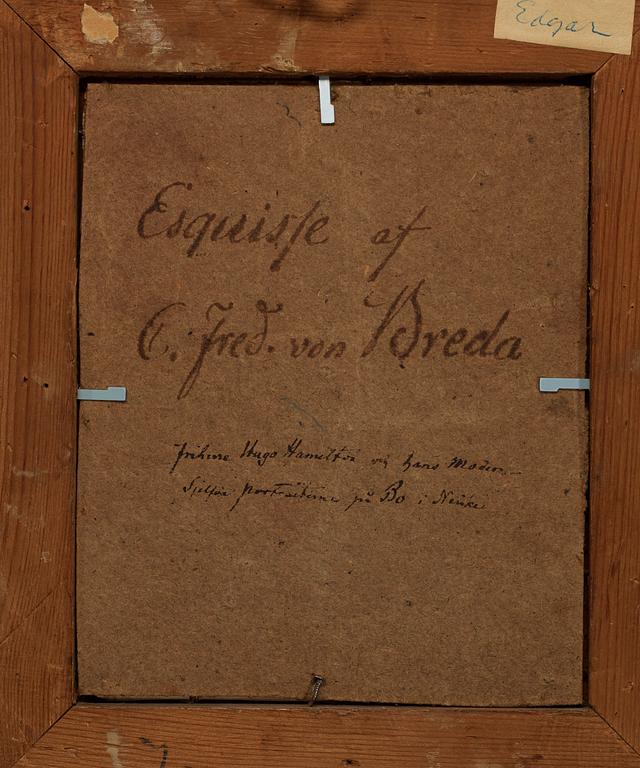 Edgar
Esquisse af
C. Fred. von Breda
friherre Hugo Hamilton och hans Moder.
Sjelfva portraiterna på Bo i Nerike